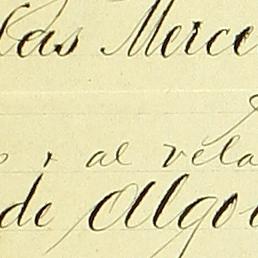 las Merce
al vela
de Algo